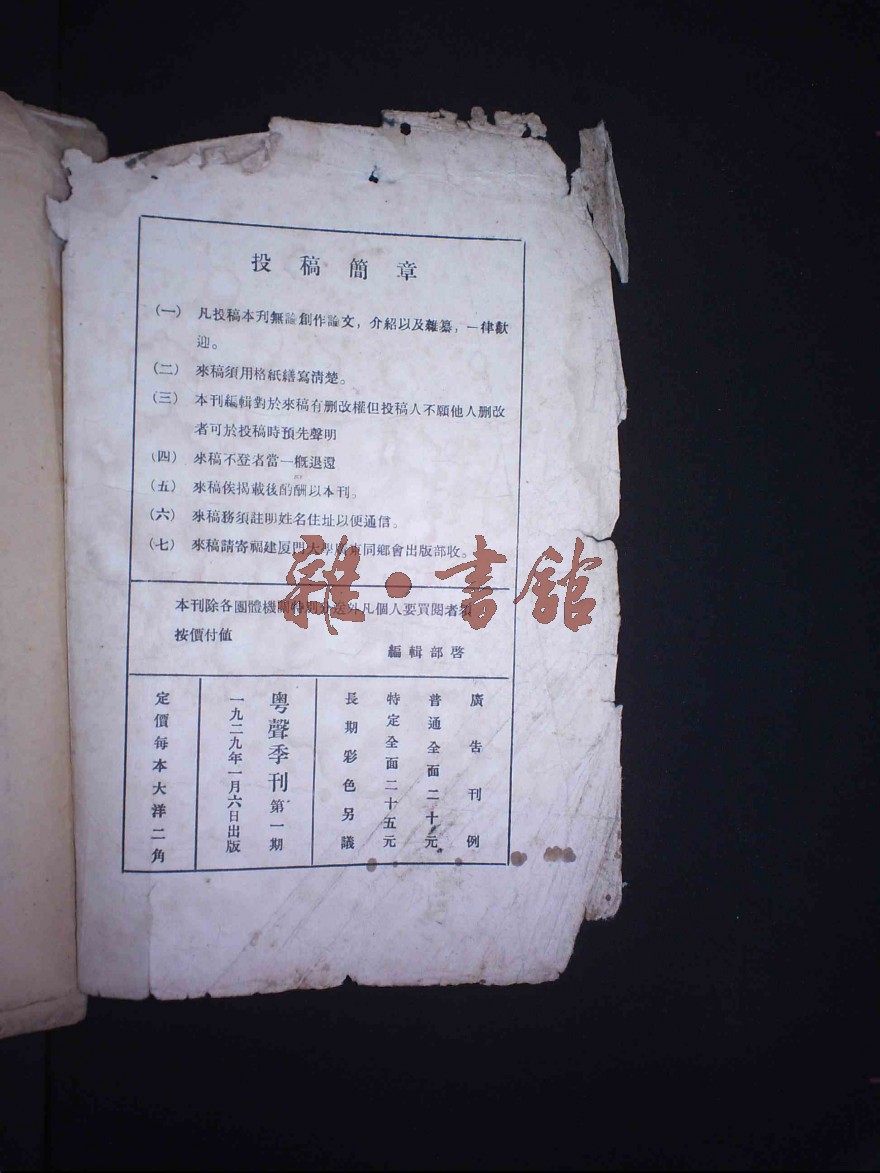 投稿簡章
(一) 凡投稿本刋無論創作論文，介紹以及雜纂，一律歡
迎。
(二) 來稿須用格紙繕寫清楚。
(三) 本刋編輯對於來稿有删改權但投稿人不願他人删改
者可於投稿時預先聲明
(四) 來稿不登者當一概退還
(五) 來稿俟揭載後酌酬以本刋。
(六) 來稿務須註明姓名住址以便通信。
(七) 來稿請寄福建厦門大學廣東同鄉會出版部收。
本刋除各團體機關特別分送外凡個人要買閱者須
按價付値
編輯部啓
廣告刋例
普通全面二十元
特定全面二十五元
長期彩色另議
粤聲季刋第一期
一九二九年一月六日出版
定價每本大洋二角
雜·書館